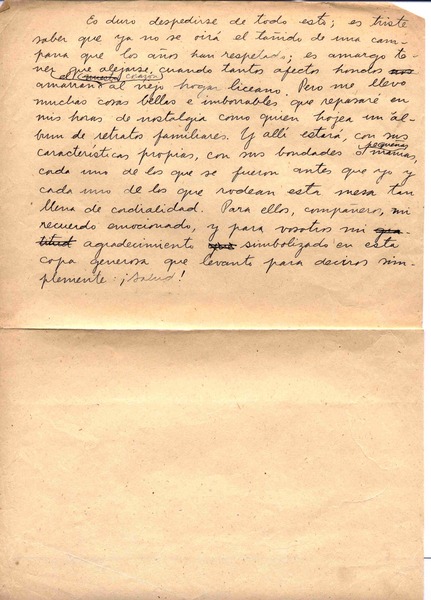 Es duro despedirse de todo esto; es triste
saber que ya no se oirá el tañido de una cam-
pana que los años han respetado; es amargo te-
ner que alejarse cuando tantos afectos hondos
el corazón
amarran al viejo hogar liceano. Pero me llevo
muchas cosas bellas e imborrables que repasaré en
mis horas de nostalgia como quien hojea un ál-
bum de retratos familiares. Y allí estará, con sus
pequeñas
características propias, con sus bondades o manías,
cada uno de los que se fueron antes que yo y
cada uno de los que rodean esta mesa tan
llena de cordialidad. Para ellos, compañeros, mi
recuerdo emocionado, y para vosotros mi gra-
titud agradecimiento simbolizado en esta
copa generosa que levanto para deciros sim-
plemente: ¡Salud!